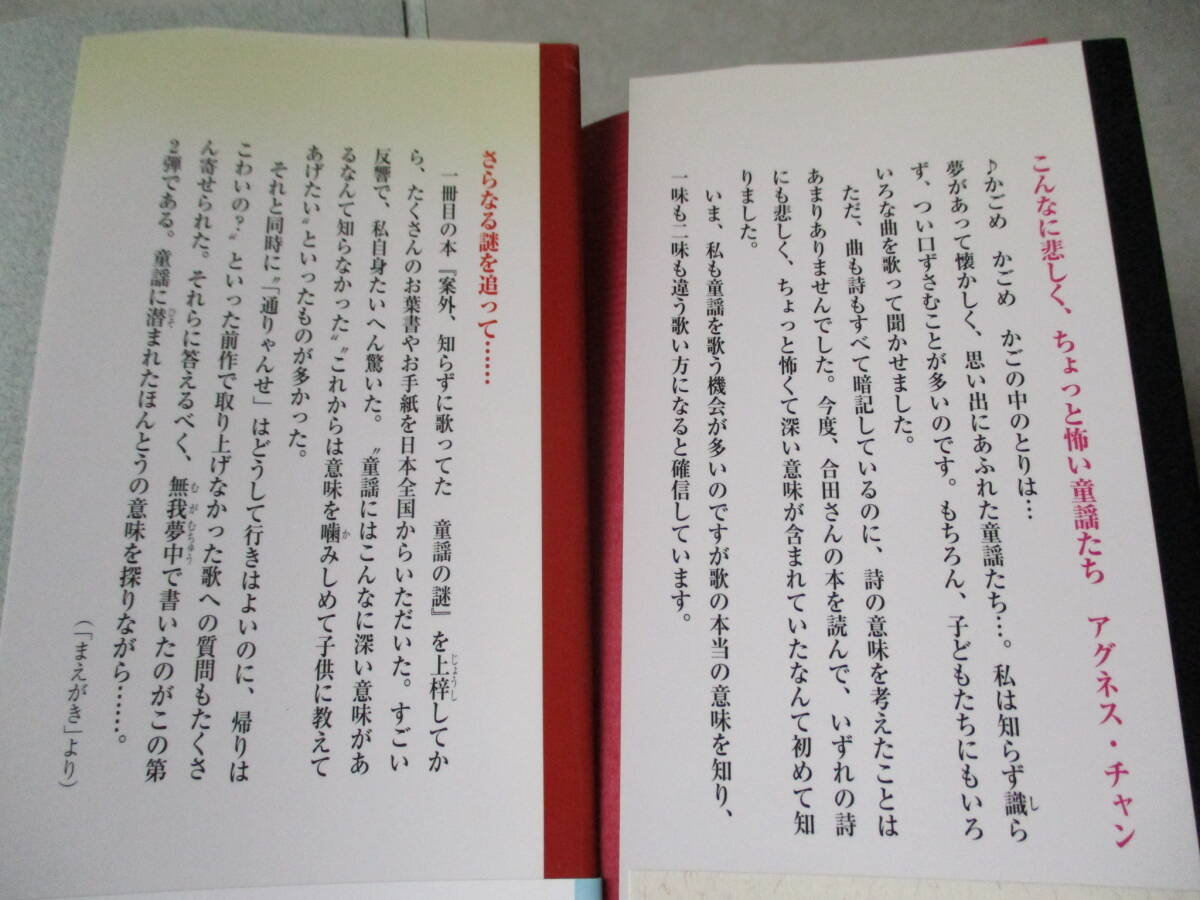 こんなに悲しく、ちょっと怖い童謡たち　アグネス・チャン
♪かごめ　かごめ　かごの中のとりは…
夢があって懐かしく、思い出にあふれた童謡たち…。私は知らず識ら
ず、つい口ずさむことが多いのです。もちろん、子どもたちにもいろ
いろな曲を歌って聞かせました。
ただ、曲も詩もすべて暗記しているのに、詩の意味を考えたことは
あまりありませんでした。今度、合田さんの本を読んで、いずれの詩
にも悲しく、ちょっと怖くて深い意味が含まれていたなんて初めて知
りました。
いま、私も童謡を歌う機会が多いのですが歌の本当の意味を知り、
一味も二味も違う歌い方になると確信しています。
さらなる謎を追って……
一冊目の本『案外、知らずに歌ってた　童謡の謎』を上梓してか
ら、たくさんのお葉書やお手紙を日本全国からいただいた。すごい
反響で、私自身たいへん驚いた。〝童謡にはこんなに深い意味があ
るなんて知らなかった〟〝これからは意味を噛みしめて子供に教えて
あげたい〟といったものが多かった。
それと同時に〝「通りゃんせ」はどうして行きはよいのに、帰りは
こわいの？〟といった前作で取り上げなかった歌への質問もたくさ
ん寄せられた。それらに答えるべく、無我夢中で書いたのがこの第
2弾である。童謡に潜まれたほんとうの意味を探りながら……。
（「まえがき」より）